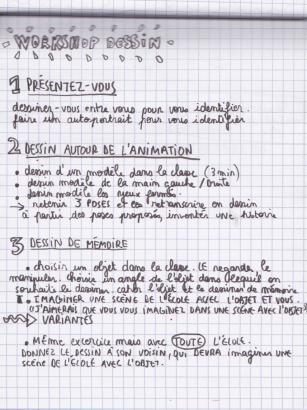 - WORKSHOP DESSIN -
1 PRÉSENTEZ-VOUS
dessiner-vous entre vous pour vous identifier.
faire un autoportrait pour vous identifier
2 DESSIN AUTOUR DE L'ANIMATION
• dessin d'un modèle dans la classe (3 min)
• dessin modèle de la main gauche / Droite
• dessin modèle les yeux fermés.
→ retenir 3 POSES et en retranscrire en dessin
à partir des poses proposées, inventer une histoire
3 DESSIN DE MÉMOIRE
• choisir un objet dans la classe. LE regarder, le
manipuler, choisir un angle de l'objet dans lequel on
souhaite le dessiner. cacher l'objet et le dessiner de mémoire
• IMAGINER UNE SCÈNE DE L'ÉCOLE AVEC L'OBJET ET VOUS.
"J'AIMERAIS QUE VOUS VOUS IMAGINIEZ DANS UNE SCÈNE AVEC L'OBJET"
→ VARIANTES
• MÊME exercice mais avec TOUTE L'ÉCOLE.
DONNEZ LE DESSIN À SON VOISIN, QUI DEVRA imaginer une
scène DE L'ÉCOLE AVEC L'OBJET.